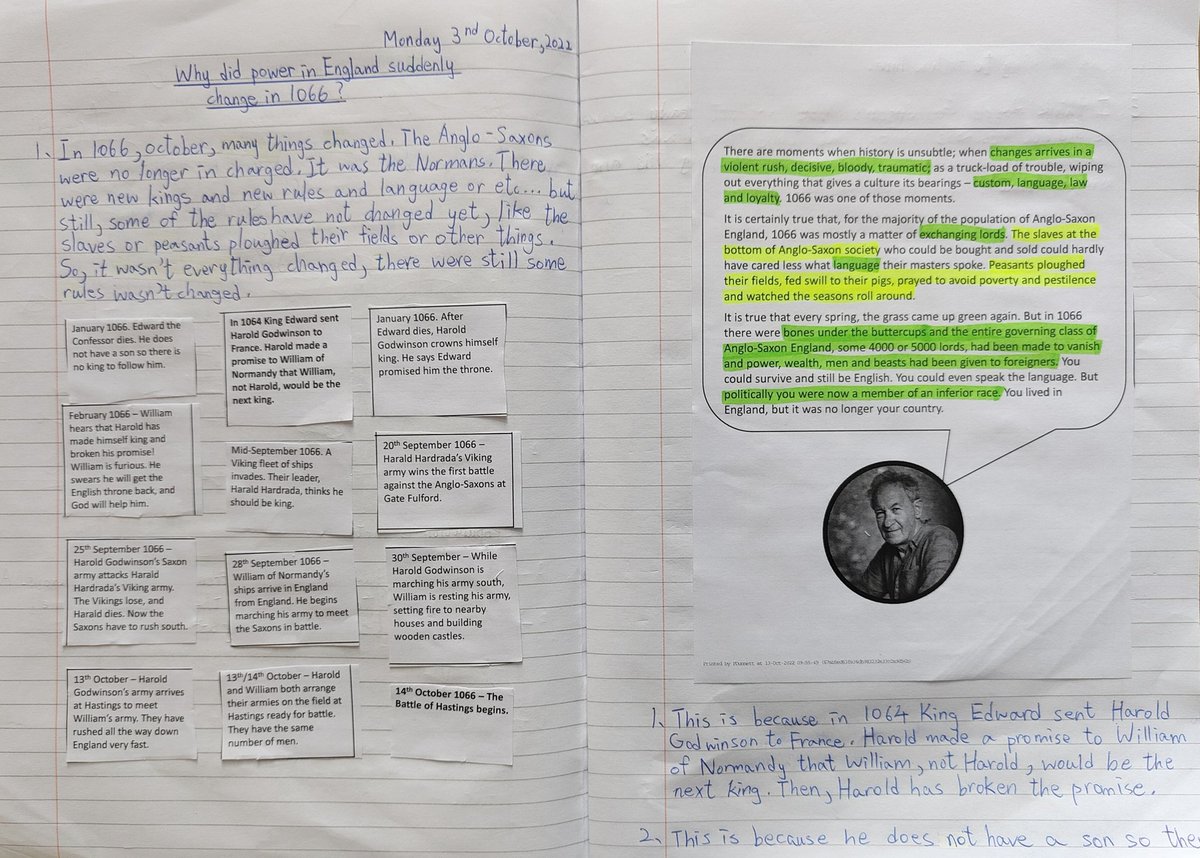 Monday 3rd October, 2022
Why did power in England suddenly
change in 1066?
1. In 1066, october, many things changed. The Anglo-Saxons
were no longer in charged. It was the Normans. There
were new kings and new rules and language or etc... but
still, some of the rules have not changed yet, like the
slaves or peasants ploughed their fields or other things.
So, it wasn't everything changed, there were still some
rules wasn't changed.
January 1066. Edward the
Confessor dies. He does
not have a son so there is
no king to follow him.
In 1064 King Edward sent
Harold Godwinson to
France. Harold made a
promise to William of
Normandy that William,
not Harold, would be the
next king.
January 1066. After
Edward dies, Harold
Godwinson crowns himself
king. He says Edward
promised him the throne.
February 1066 – William
hears that Harold has
made himself king and
broken his promise!
William is furious. He
swears he will get the
English throne back, and
God will help him.
Mid-September 1066. A
Viking fleet of ships
invades. Their leader,
Harald Hardrada, thinks he
should be king.
20th September 1066 –
Harald Hardrada's Viking
army wins the first battle
against the Anglo-Saxons at
Gate Fulford.
25th September 1066 –
Harold Godwinson's Saxon
army attacks Harald
Hardrada's Viking army.
The Vikings lose, and
Harald dies. Now the
Saxons have to rush south.
28th September 1066 –
William of Normandy's
ships arrive in England
from England. He begins
marching his army to meet
the Saxons in battle.
30th September – While
Harold Godwinson is
marching his army south,
William is resting his army,
setting fire to nearby
houses and building
wooden castles.
13th October – Harold
Godwinson's army arrives
at Hastings to meet
William's army. They have
rushed all the way down
England very fast.
13th/14th October – Harold
and William both arrange
their armies on the field at
Hastings ready for battle.
They have the same
number of men.
14th October 1066 – The
Battle of Hastings begins.
There are moments when history is unsubtle; when changes arrives in a
violent rush, decisive, bloody, traumatic; as a truck-load of trouble, wiping
out everything that gives a culture its bearings – custom, language, law
and loyalty. 1066 was one of those moments.
It is certainly true that, for the majority of the population of Anglo-Saxon
England, 1066 was mostly a matter of exchanging lords. The slaves at the
bottom of Anglo-Saxon society who could be bought and sold could hardly
have cared less what language their masters spoke. Peasants ploughed
their fields, fed swill to their pigs, prayed to avoid poverty and pestilence
and watched the seasons roll around.
It is true that every spring, the grass came up green again. But in 1066
there were bones under the buttercups and the entire governing class of
Anglo-Saxon England, some 4000 or 5000 lords, had been made to vanish
and power, wealth, men and beasts had been given to foreigners. You
could survive and still be English. You could even speak the language. But
politically you were now a member of an inferior race. You lived in
England, but it was no longer your country.
1. This is because in 1064 King Edward sent Harold
Godwinson to France. Harold made a promise to William
of Normandy that William, not Harold, would be the
next king. Then, Harold has broken the promise.
2. This is because he does not have a son so